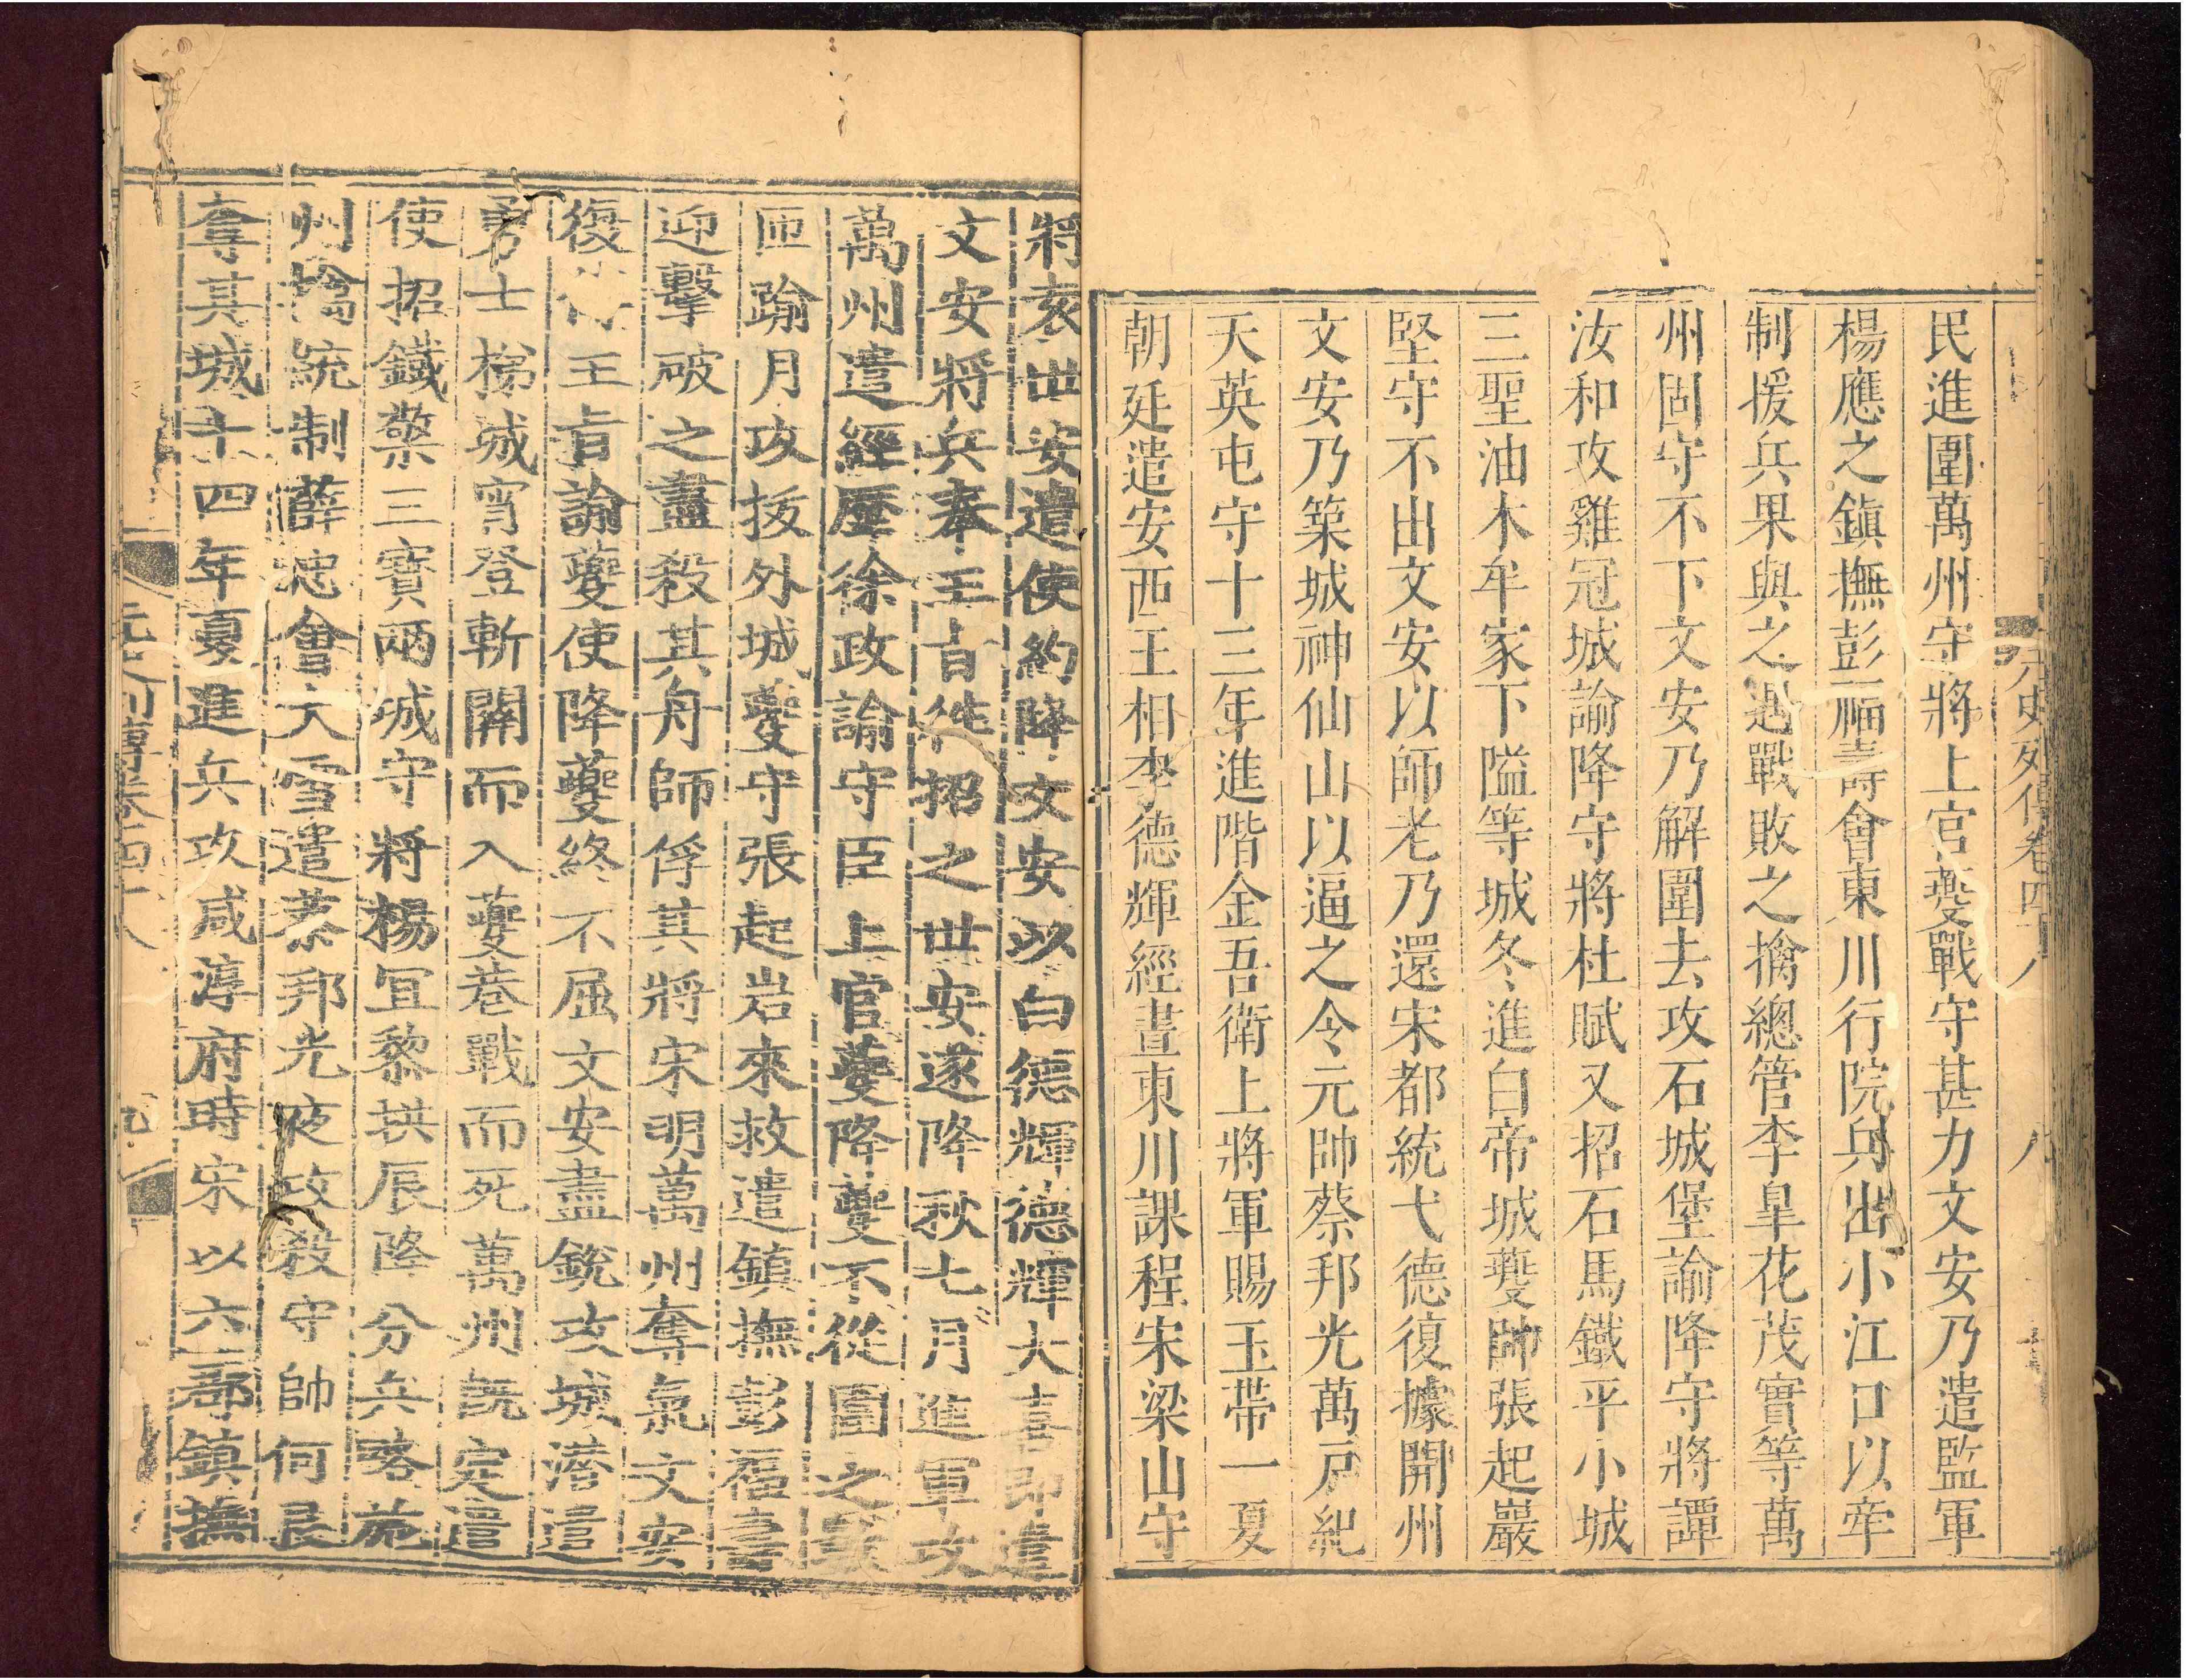 元史列傳卷四十八　八
民進圍萬州守將上官夔戰守甚力文安乃遣監軍
楊應之鎮撫彭福壽會東川行院兵出小江口以牽
制援兵果與之遇戰敗之擒總管李臯花茂實等萬
州固守不下文安乃解圍去攻石城堡諭降守將譚
汝和攻雞冠城諭降守將杜賦又招石馬鐵平小城
三聖油木牟家下隘等城冬進白帝城夔帥張起巖
堅守不出文安以師老乃還宋都統弋德復據開州
文安乃築城神仙山以逼之令元帥蔡邦光萬戶紀
天英屯守十三年進階金吾衛上將軍賜玉帶一夏
朝廷遣安西王相李德輝經畫東川課程宋梁山守
將袁世安遣使約降文安以白德輝德輝大喜即遣
文安將兵奉王旨徃招之世安遂降秋七月進軍攻
萬州遣經歷徐政諭守臣上官夔降夔不從圍之數
匝踰月攻拔外城夔守張起岩來救遣鎮撫彭福壽
迎擊破之盡殺其舟師俘其將宋明萬州奪氣文安
復 王旨諭夔使降夔終不屈文安盡銳攻城潛遣
勇士梯城宵登斬關而入夔巷戰而死萬州既定遣
使招鐵檠三寶兩城守將楊冝黎拱辰降分兵略施
州擒統制薛忠會大雪遣蔡邦光夜攻殺守帥何良
奪其城十四年夏進兵攻咸淳府時宋以六郡鎮撫
元史列傳卷四十八　九